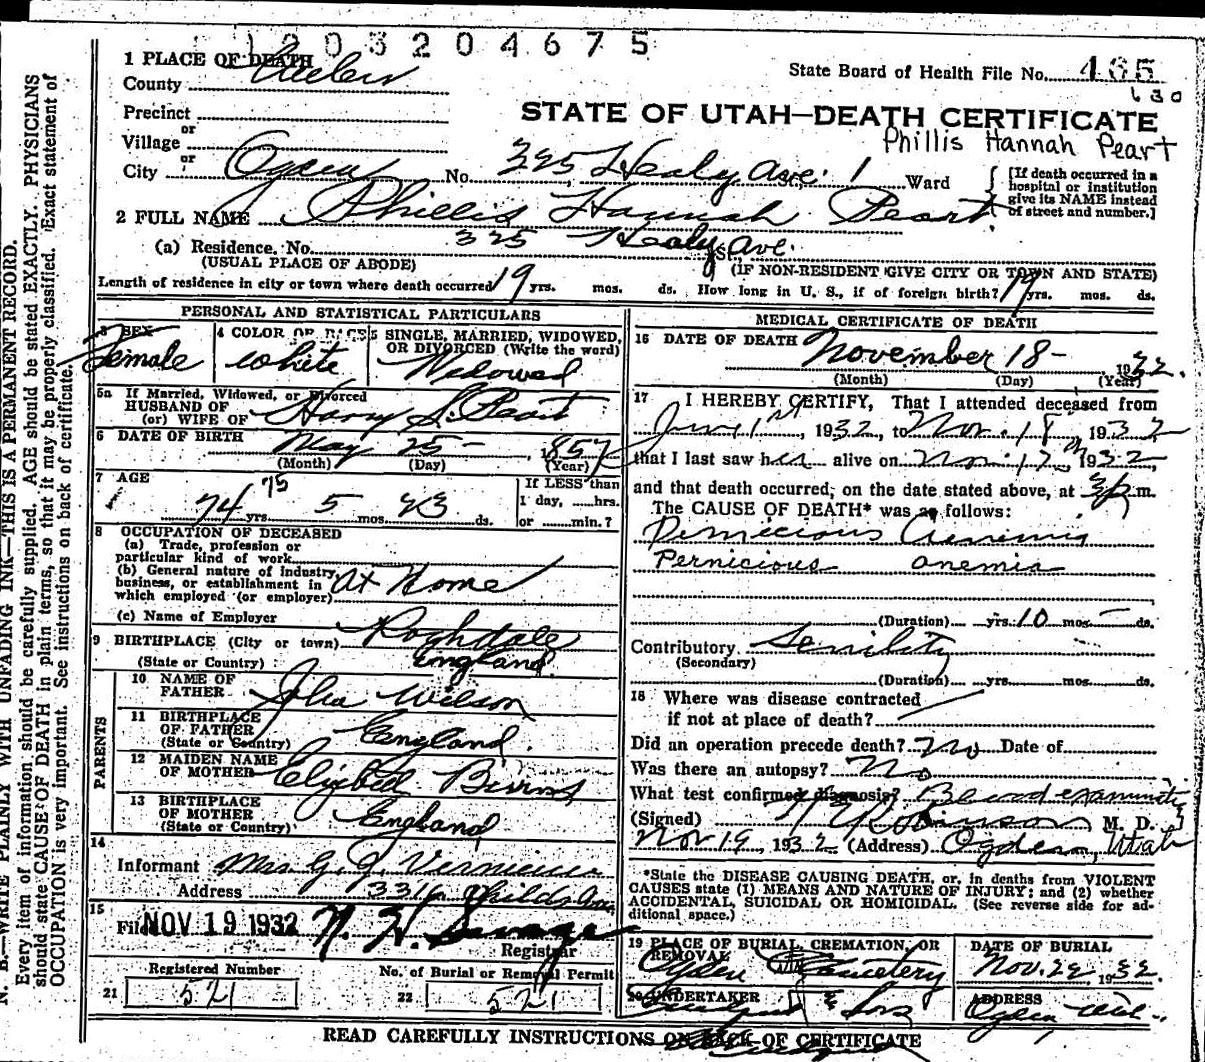 1 2 0 3 2 0 4 6 7 5
1 PLACE OF DEATH
County Weber
State Board of Health File No. 435
630
Precinct
or
STATE OF UTAH—DEATH CERTIFICATE
Phillis Hannah Peart
Village
or
City Ogden No. 325 Healy Ave. St. 1 Ward
[If death occurred in a hospital or institution give its NAME instead of street and number.]
2 FULL NAME Phillis Hannah Peart
(a) Residence. No. 325 Healy Ave. St.
(USUAL PLACE OF ABODE) (IF NON-RESIDENT GIVE CITY OR TOWN AND STATE)
Length of residence in city or town where death occurred 19 yrs. mos. ds. How long in U. S., if of foreign birth? 19 yrs. mos. ds.
PERSONAL AND STATISTICAL PARTICULARS
3 SEX
Female
4 COLOR OR RACE
white
5 SINGLE, MARRIED, WIDOWED,
OR DIVORCED (Write the word)
Widowed
5a If Married, Widowed, or Divorced
HUSBAND OF
(or) WIFE OF Harry S. Peart
6 DATE OF BIRTH May 25 - 1857
(Month) (Day) (Year)
7 AGE
74 75 yrs. 5 mos. 23 ds.
If LESS than
1 day, hrs.
or min.?
8 OCCUPATION OF DECEASED
(a) Trade, profession or
particular kind of work
(b) General nature of industry,
business, or establishment in
which employed (or employer) At Home
(c) Name of Employer
9 BIRTHPLACE (City or town) Rochdale
(State or Country) England
PARENTS
10 NAME OF
FATHER John Wilson
11 BIRTHPLACE
OF FATHER
(State or Country) England.
12 MAIDEN NAME
OF MOTHER
13 BIRTHPLACE
OF MOTHER
(State or Country) England
14
Informant Mrs G. J.
Address 3316 Childs Ave.
15
Filed NOV 19 1932
Registrar
Registered Number
21 521
No. of Burial or Removal Permit
22 521
MEDICAL CERTIFICATE OF DEATH
16 DATE OF DEATH November 18 - 1932.
(Month) (Day) (Year)
17 I HEREBY CERTIFY, That I attended deceased from
June 1st, 1932, to Nov. 18, 1932
that I last saw her alive on Nov. 17th, 1932,
and that death occurred, on the date stated above, at m.
The CAUSE OF DEATH* was as follows:
Pernicious Anemia
Pernicious anemia
(Duration) yrs. 10 mos. - ds.
Contributory Senility
(Secondary)
(Duration) yrs. mos. ds.
18 Where was disease contracted
if not at place of death?
Did an operation precede death? No Date of
Was there an autopsy? No
What test confirmed diagnosis? Blood examination
(Signed) Robinson M. D.
Nov 19, 1932 (Address) Ogden, Utah
*State the DISEASE CAUSING DEATH, or, in deaths from VIOLENT
CAUSES state (1) MEANS AND NATURE OF INJURY; and (2) whether
ACCIDENTAL, SUICIDAL OR HOMICIDAL. (See reverse side for ad-
ditional space.)
19 PLACE OF BURIAL, CREMATION, OR
REMOVAL
Ogden City Cemetery
DATE OF BURIAL
Nov. 22, 1932.
20 UNDERTAKER
& Sons
ADDRESS
Ogden, Utah.
READ CAREFULLY INSTRUCTIONS ON BACK OF CERTIFICATE
N. B.—WRITE PLAINLY WITH UNFADING INK—THIS IS A PERMANENT RECORD.
Every item of information should be carefully supplied. AGE should be stated EXACTLY. PHYSICIANS
should state CAUSE OF DEATH in plain terms, so that it may be properly classified. Exact statement of
OCCUPATION is very important. See instructions on back of certificate.